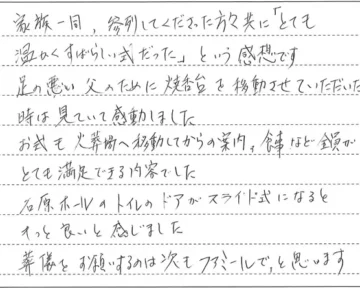 家族一同、参列してくださった方々共に「とても
温かくすばらしい式だった」という感想です
足の悪い父のために焼香台を移動させていただいた
時は見ていて感動しました
お式も火葬場へ移動してからの案内、食事など全員が
とても満足できる内容でした
石原ホールのトイレのドアがスライド式になると
もっと良いと感じました
葬儀をお願いするのは次もファミールで、と思います